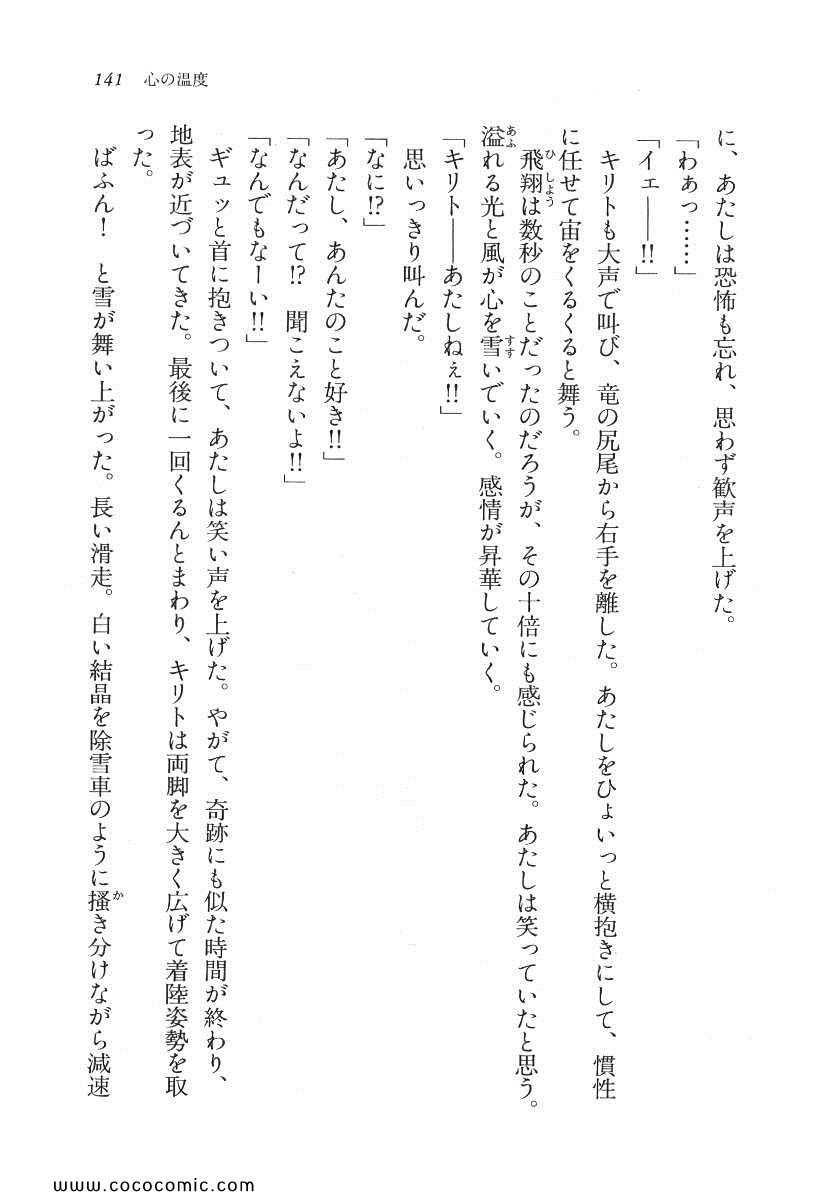 141 心の温度
に、あたしは恐怖も忘れ、思わず歓声を上げた。
「わぁっ……」
「イェ——!!」
キリトも大声で叫び、竜の尻尾から右手を離した。あたしをひょいっと横抱きにして、慣性
に任せて宙をくるくると舞う。
飛翔は数秒のことだったのだろうが、その十倍にも感じられた。あたしは笑っていたと思う。
溢れる光と風が心を雪いでいく。感情が昇華していく。
「キリト——あたしねぇ!!」
思いっきり叫んだ。
「なに!?」
「あたし、あんたのこと好き!!」
「なんだって!? 聞こえないよ!!」
「なんでもなーい!!」
ギュッと首に抱きついて、あたしは笑い声を上げた。やがて、奇跡にも似た時間が終わり、
地表が近づいてきた。最後に一回くるんとまわり、キリトは両脚を大きく広げて着陸姿勢を取
った。
ばふん! と雪が舞い上がった。長い滑走。白い結晶を除雪車のように掻き分けながら減速
www.cococomic.com